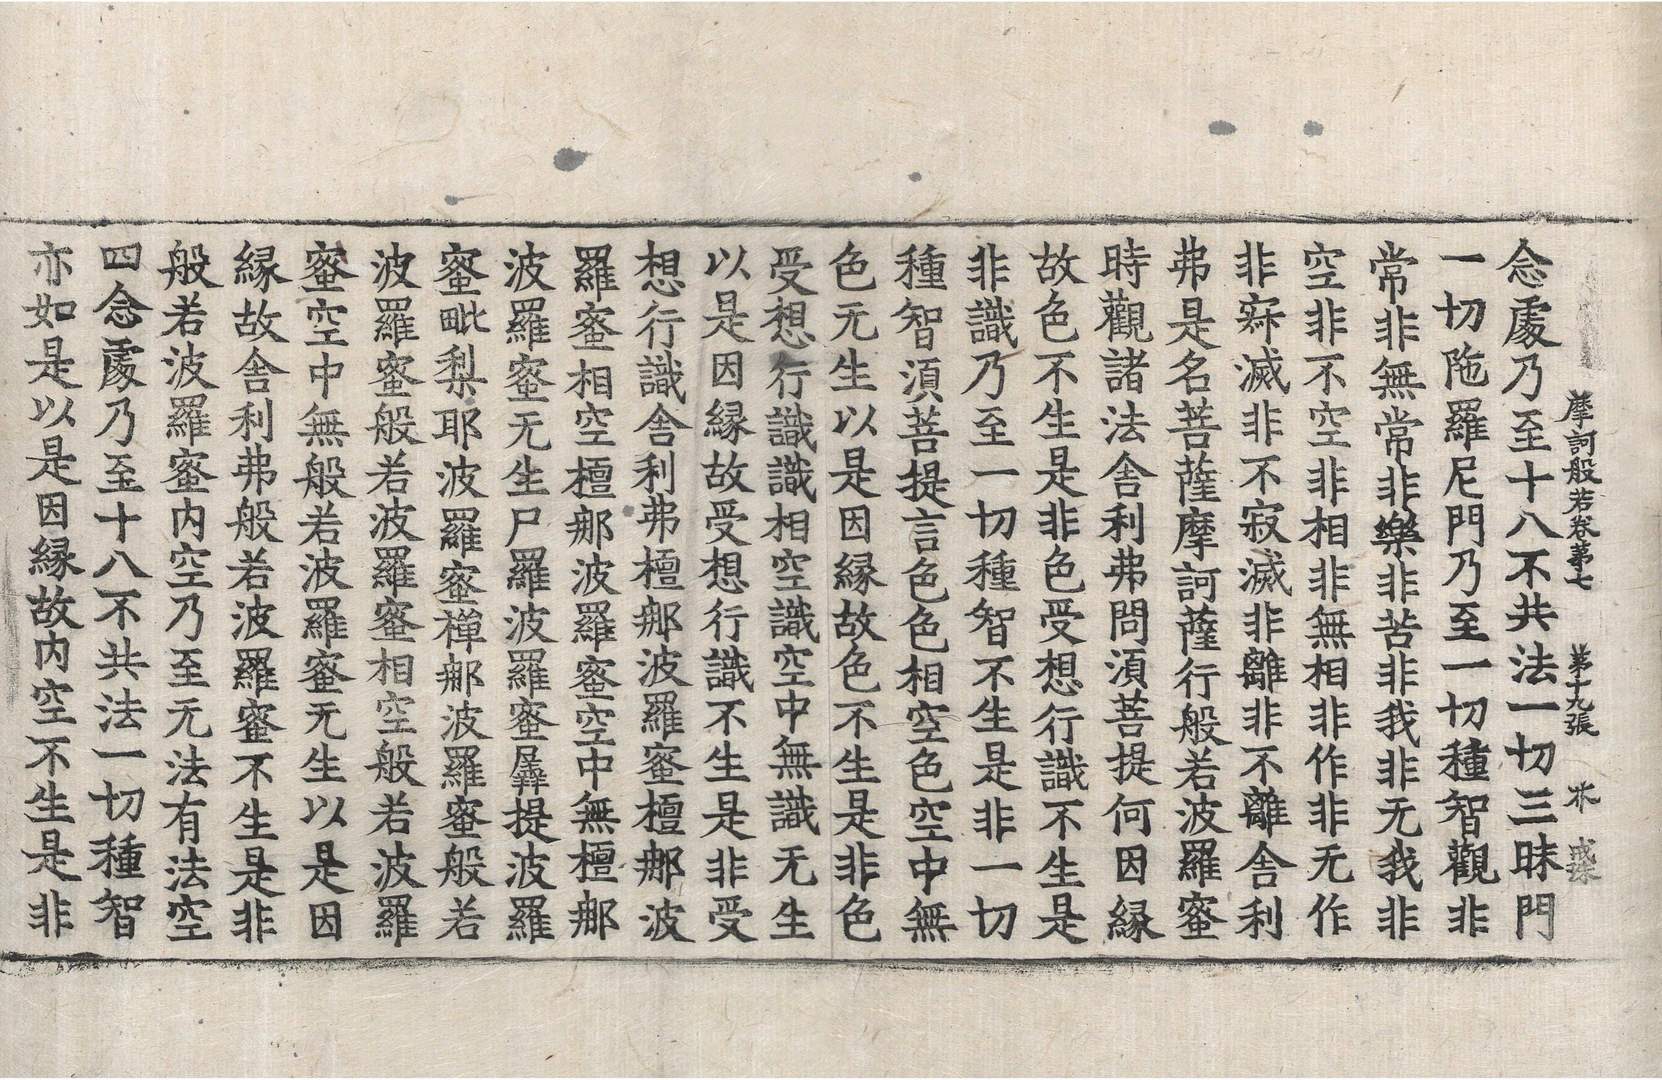 摩訶般若卷第七 第十九張 水
念處乃至十八不共法一切三昧門
一切陁羅尼門乃至一切種智觀非
常非無常非樂非苦非我非无我非
空非不空非相非無相非作非无作
非寂滅非不寂滅非離非不離舍利
弗是名菩薩摩訶薩行般若波羅蜜
時觀諸法舍利弗問湏菩提何因緣
故色不生是非色受想行識不生是
非識乃至一切種智不生是非一切
種智湏菩提言色色相空色空中無
色无生以是因緣故色不生是非色
受想行識識相空識空中無識无生
以是因緣故受想行識不生是非受
想行識舍利弗檀那波羅蜜檀那波
羅蜜相空檀那波羅蜜空中無檀那
波羅蜜无生尸羅波羅蜜羼提波羅
蜜毗梨耶波羅蜜禪那波羅蜜般若
波羅蜜般若波羅蜜相空般若波羅
蜜空中無般若波羅蜜无生以是因
緣故舍利弗般若波羅蜜不生是非
般若波羅蜜內空乃至无法有法空
四念處乃至十八不共法一切種智
亦如是以是因緣故內空不生是非